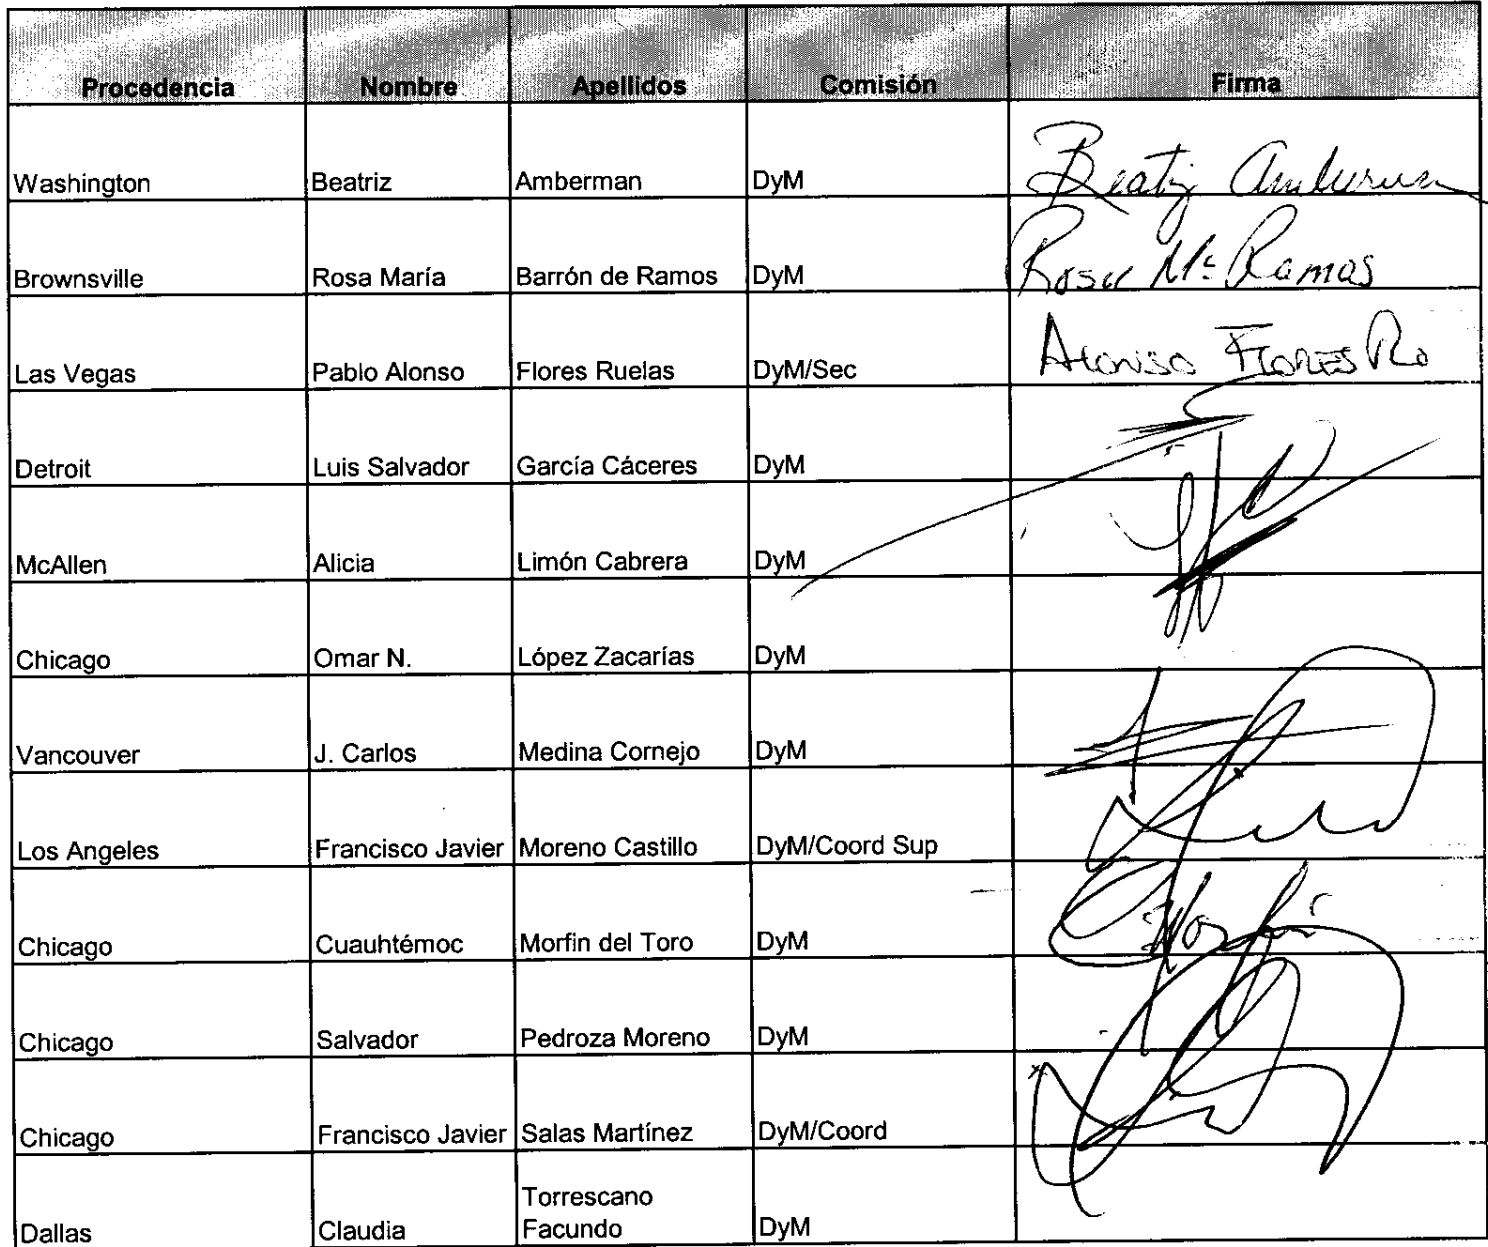 Procedencia Nombre Apellidos Comisión Firma
Washington Beatriz Amberman DyM Beatriz Amberman
Brownsville Rosa María Barrón de Ramos DyM Rosa Mª Ramos
Las Vegas Pablo Alonso Flores Ruelas DyM/Sec Alonso Flores Ru
Detroit Luis Salvador García Cáceres DyM
McAllen Alicia Limón Cabrera DyM
Chicago Omar N. López Zacarías DyM
Vancouver J. Carlos Medina Cornejo DyM
Los Angeles Francisco Javier Moreno Castillo DyM/Coord Sup
Chicago Cuauhtémoc Morfin del Toro DyM
Chicago Salvador Pedroza Moreno DyM
Chicago Francisco Javier Salas Martínez DyM/Coord
Torrescano
Dallas Claudia Facundo DyM